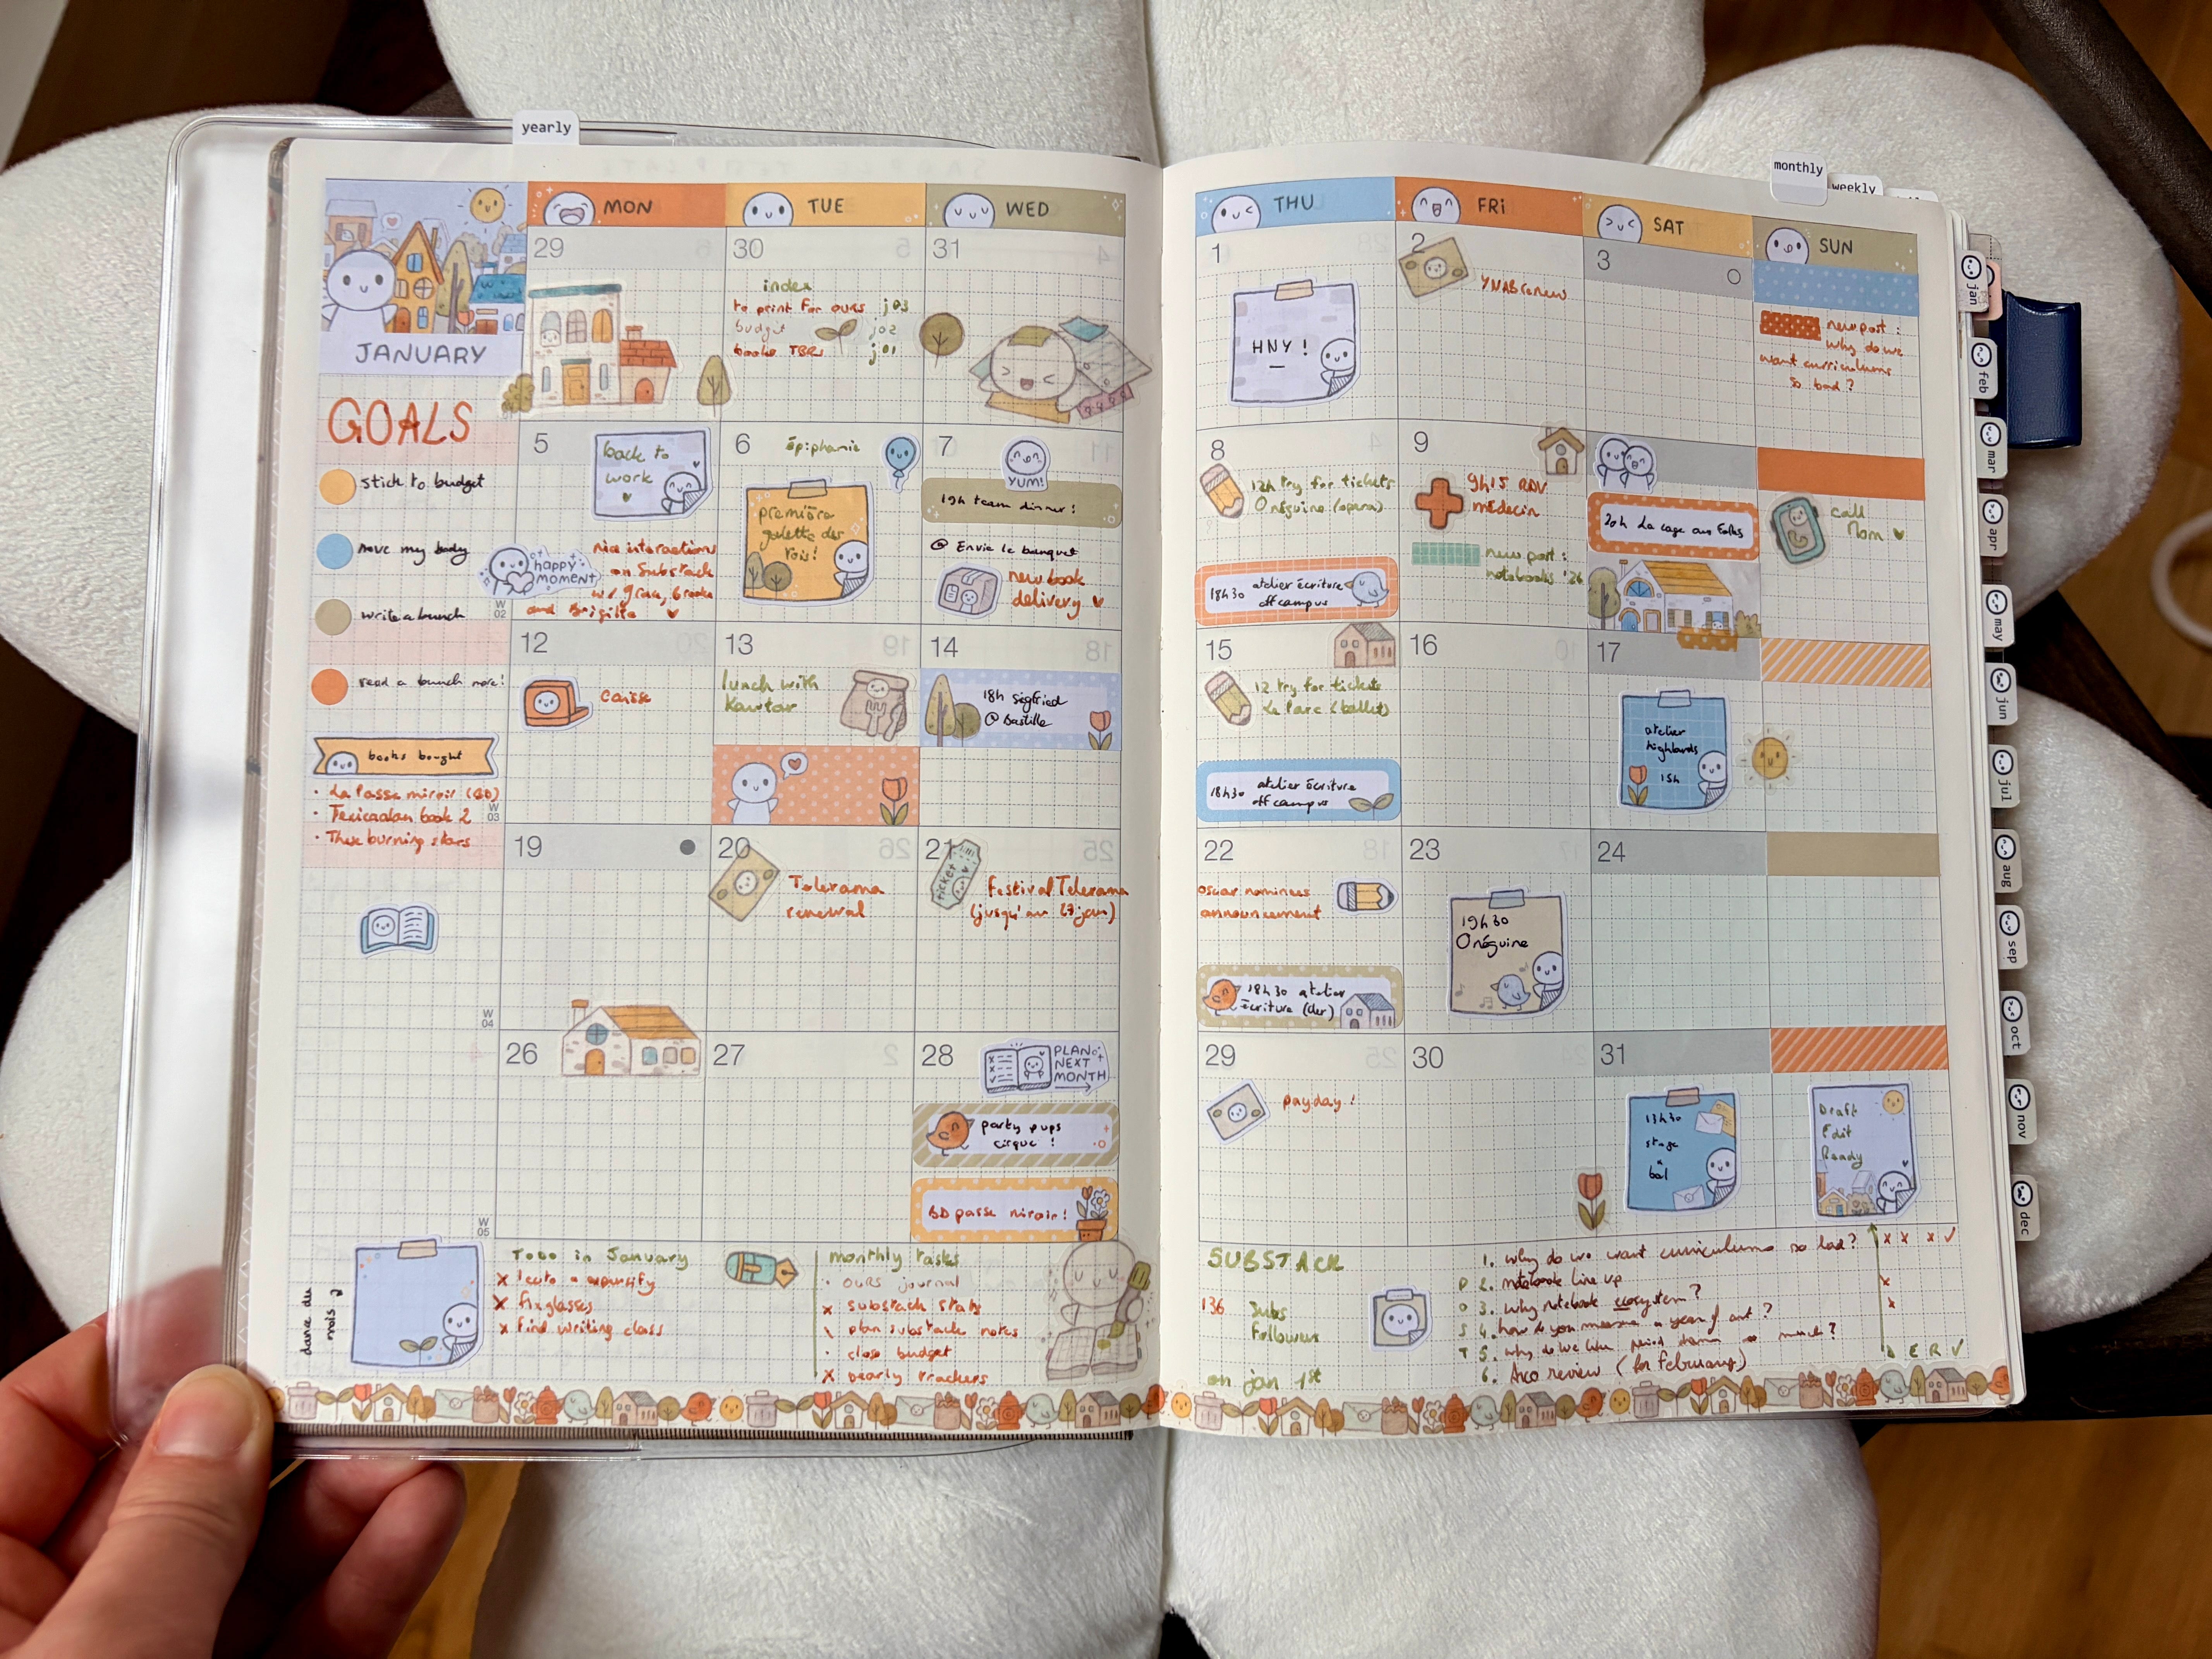 yearly
monthly
weekly
JANUARY
MON
TUE
WED
THU
FRi
SAT
SUN
GOALS
stick to budget
move my body
write a bunch
read a bunch more!
books bought
· La Passe miroir (BD)
book 2
· These burning stars
29
30
index
to print for OURS j03
budget j02
books TBRs j01
31
1
HNY!
2
YNAB renew
3
new post:
why do we
want curriculums
so bad?
W
02
5
back to
work
HAPPY
MOMENT
nice interactions
on Substack
and
6
épiphanie
première
galette des
rois!
7
YUM!
19h team dinner!
@ Envie le banquet
new book
delivery
8
12h try for tickets
Onéguine (opera)
18h30 atelier écriture
off campus
9
9h15 RDV
médecin
new post:
notebooks '26
20h La cage aux folles
call
Mom
W
03
12
caisse
13
lunch with
14
18h Siegfried
@ Bastille
15
12 try for tickets
Le Parc (ballet)
18h30 atelier écriture
off campus
16
17
atelier
highlands
15h
W
04
19
20
Telerama
renewal
21
TICKET
Festival Telerama
(jusqu'au 27 jan)
22
oscar nominees
announcement
18h30 atelier
écriture (der)
23
19h30
Onéguine
24
W
05
26
27
28
PLAN
NEXT
MONTH
party pups
cirque!
BD passe miroir!
29
payday!
30
31
13h30
stage
bal
Draft
Edit
Ready
mois
Todo in January
x fix glasses
x find writing class
monthly tasks
· OURS journal
x substack stats
\ plan substack notes
· close budget
x yearly trackers
SUBSTACK
136 subs
followers
on jan 1st
POST
1. why do we want curriculums so bad?
2. notebook line up
3. why notebook ecosystem?
4. how do you measure a year of art?
5. why do we like period drama so much?
6. review (for february)
D E R V
jan
feb
mar
apr
may
jun
jul
aug
sep
oct
nov
dec